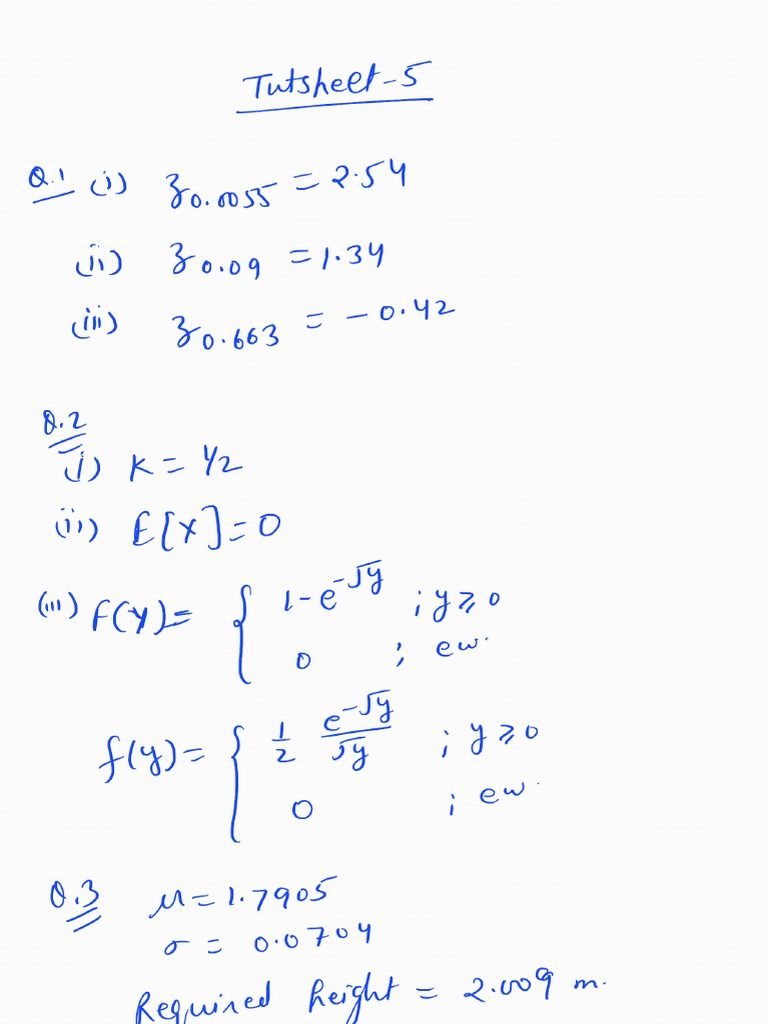 Tutsheet-5
Q.1 (i) z0.0055 = 2.54
(ii) z0.09 = 1.34
(iii) z0.663 = -0.42
Q.2
(i) K = 1/2
(ii) E[X] = 0
(iii) F(Y) = { 1-e^-√y ; y ≥ 0
0 ; ew.
f(y) = { 1/2 e^-√y/√y ; y ≥ 0
0 ; ew.
Q.3 μ = 1.7905
σ = 0.0704
Required height = 2.009 m.